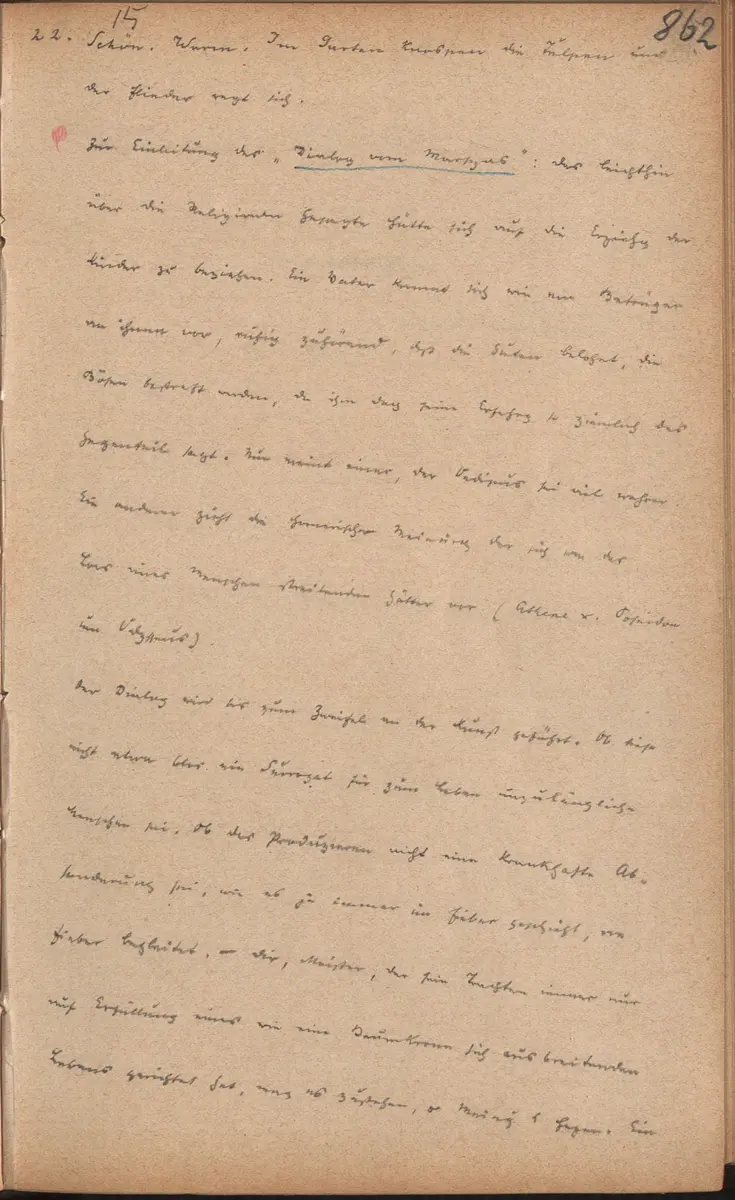 15
862
22. Schön. Warm. Im Garten Knospen die Tulpen und
der Flieder regt sich.
Zur Einleitung des „Dialog vom Marsyas": das leichthin
über die Religionen Gesagte hätte sich auf die Erziehg der
Kinder zu beziehen. Ein Vater kommt sich wie ein Betrüger
an ihnen vor, ruhig zuhörend, daß die Guten belohnt, die
Bösen bestraft werden, da ihm doch seine Erfahrg so ziemlich das
Gegenteil sagt. Nun meint einer, der Oedipus sei viel wahrer.
Ein anderer zieht die homerische Meinung der sich um das
Loos eines Menschen streitenden Götter vor (Athene u. Poseidon
um Odysseus)
Der Dialog wird bis zum Zweifel an der Kunst geführt. Ob diese
nicht etwa blos ein Surrogat für zum Leben unzulängliche
Menschen sei. Ob das Produzieren nicht eine krankhafte Ab-
sonderung sei, wie es ja immer im Fieber geschieht, von
Fieber begleitet. – Dir, Meister, der sein Trachten immer nur
auf Erfüllung eines wie eine Baumkrone sich ausbreitenden
Lebens gerichtet hat, mag es zustehen, Ein